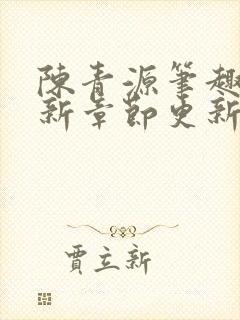 陳青源筆趣
新章節更新
賈立新